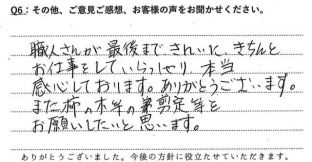 Q6：その他、ご意見ご感想、お客様の声をお聞かせください。
職人さんが最後まできれいに、きちんと
お仕事をしていらっしゃり、本当
感心しております。ありがとうございます。
また柿の木等の剪定等を
お願いしたいと思います。
ありがとうございました。今後の方針に役立たせていただきます。